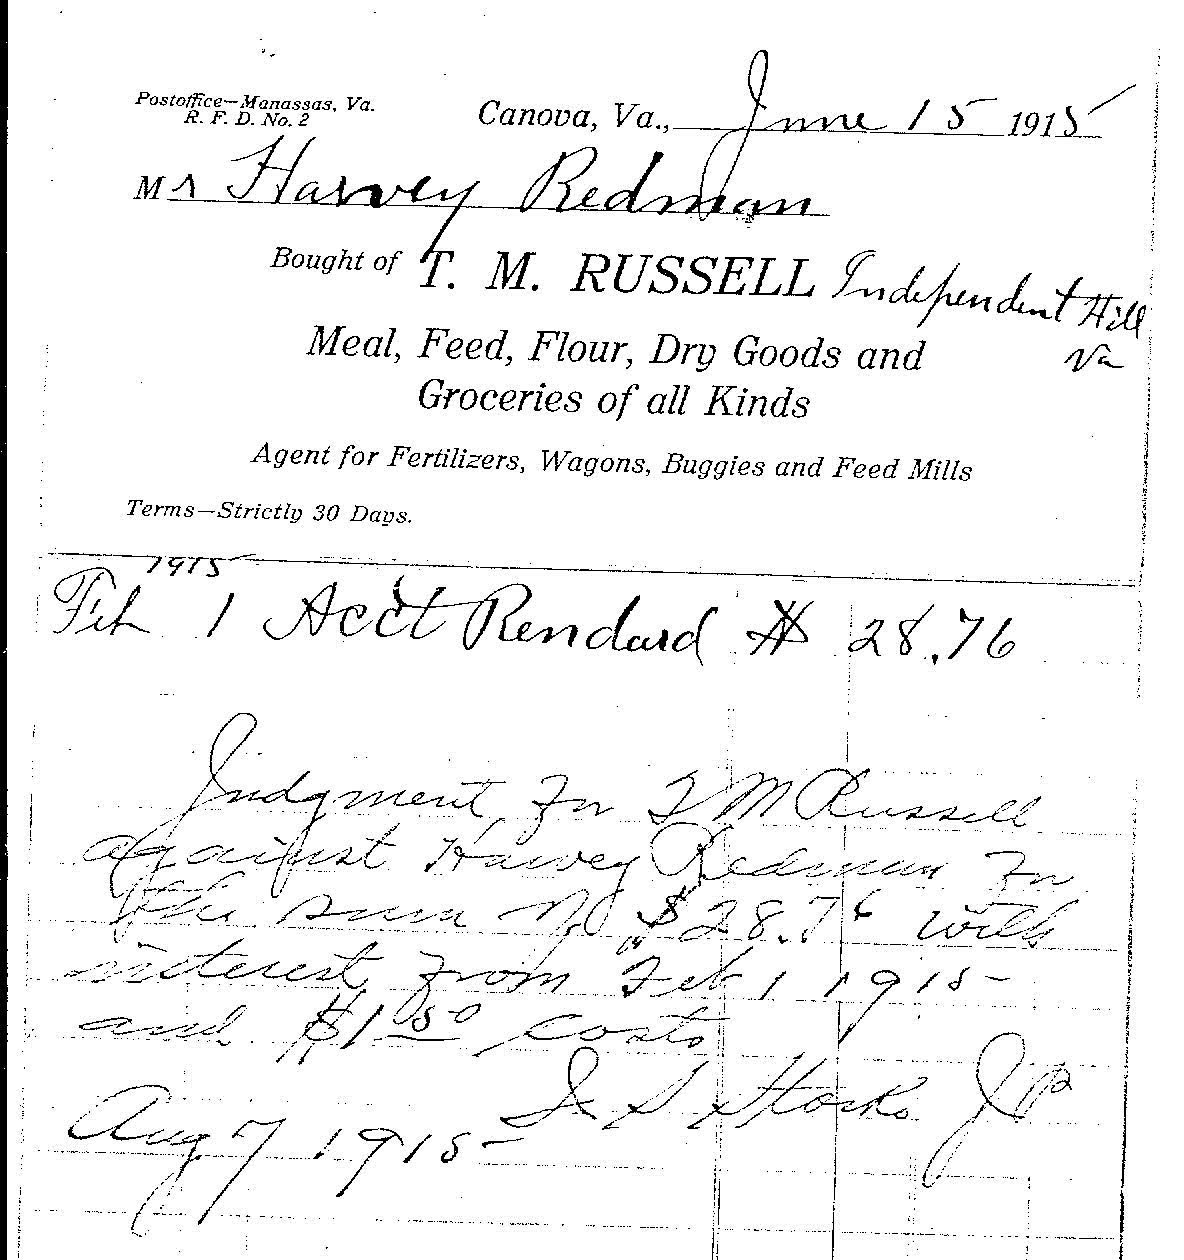 Postoffice—Manassas, Va.
R. F. D. No. 2
Canova, Va., June 15 1915
Mr Harvey Redman
Bought of T. M. RUSSELL Independent Hill
Va
Meal, Feed, Flour, Dry Goods and
Groceries of all Kinds
Agent for Fertilizers, Wagons, Buggies and Feed Mills
Terms—Strictly 30 Days.
1915
Feb 1 Acct Rendard $ 28.76
Judgment for T M Russell
against Harvey Redman for
the sum of $28.76 with
interest from Feb 1 1915
and $1.50 costs
J P
Aug 7 1915